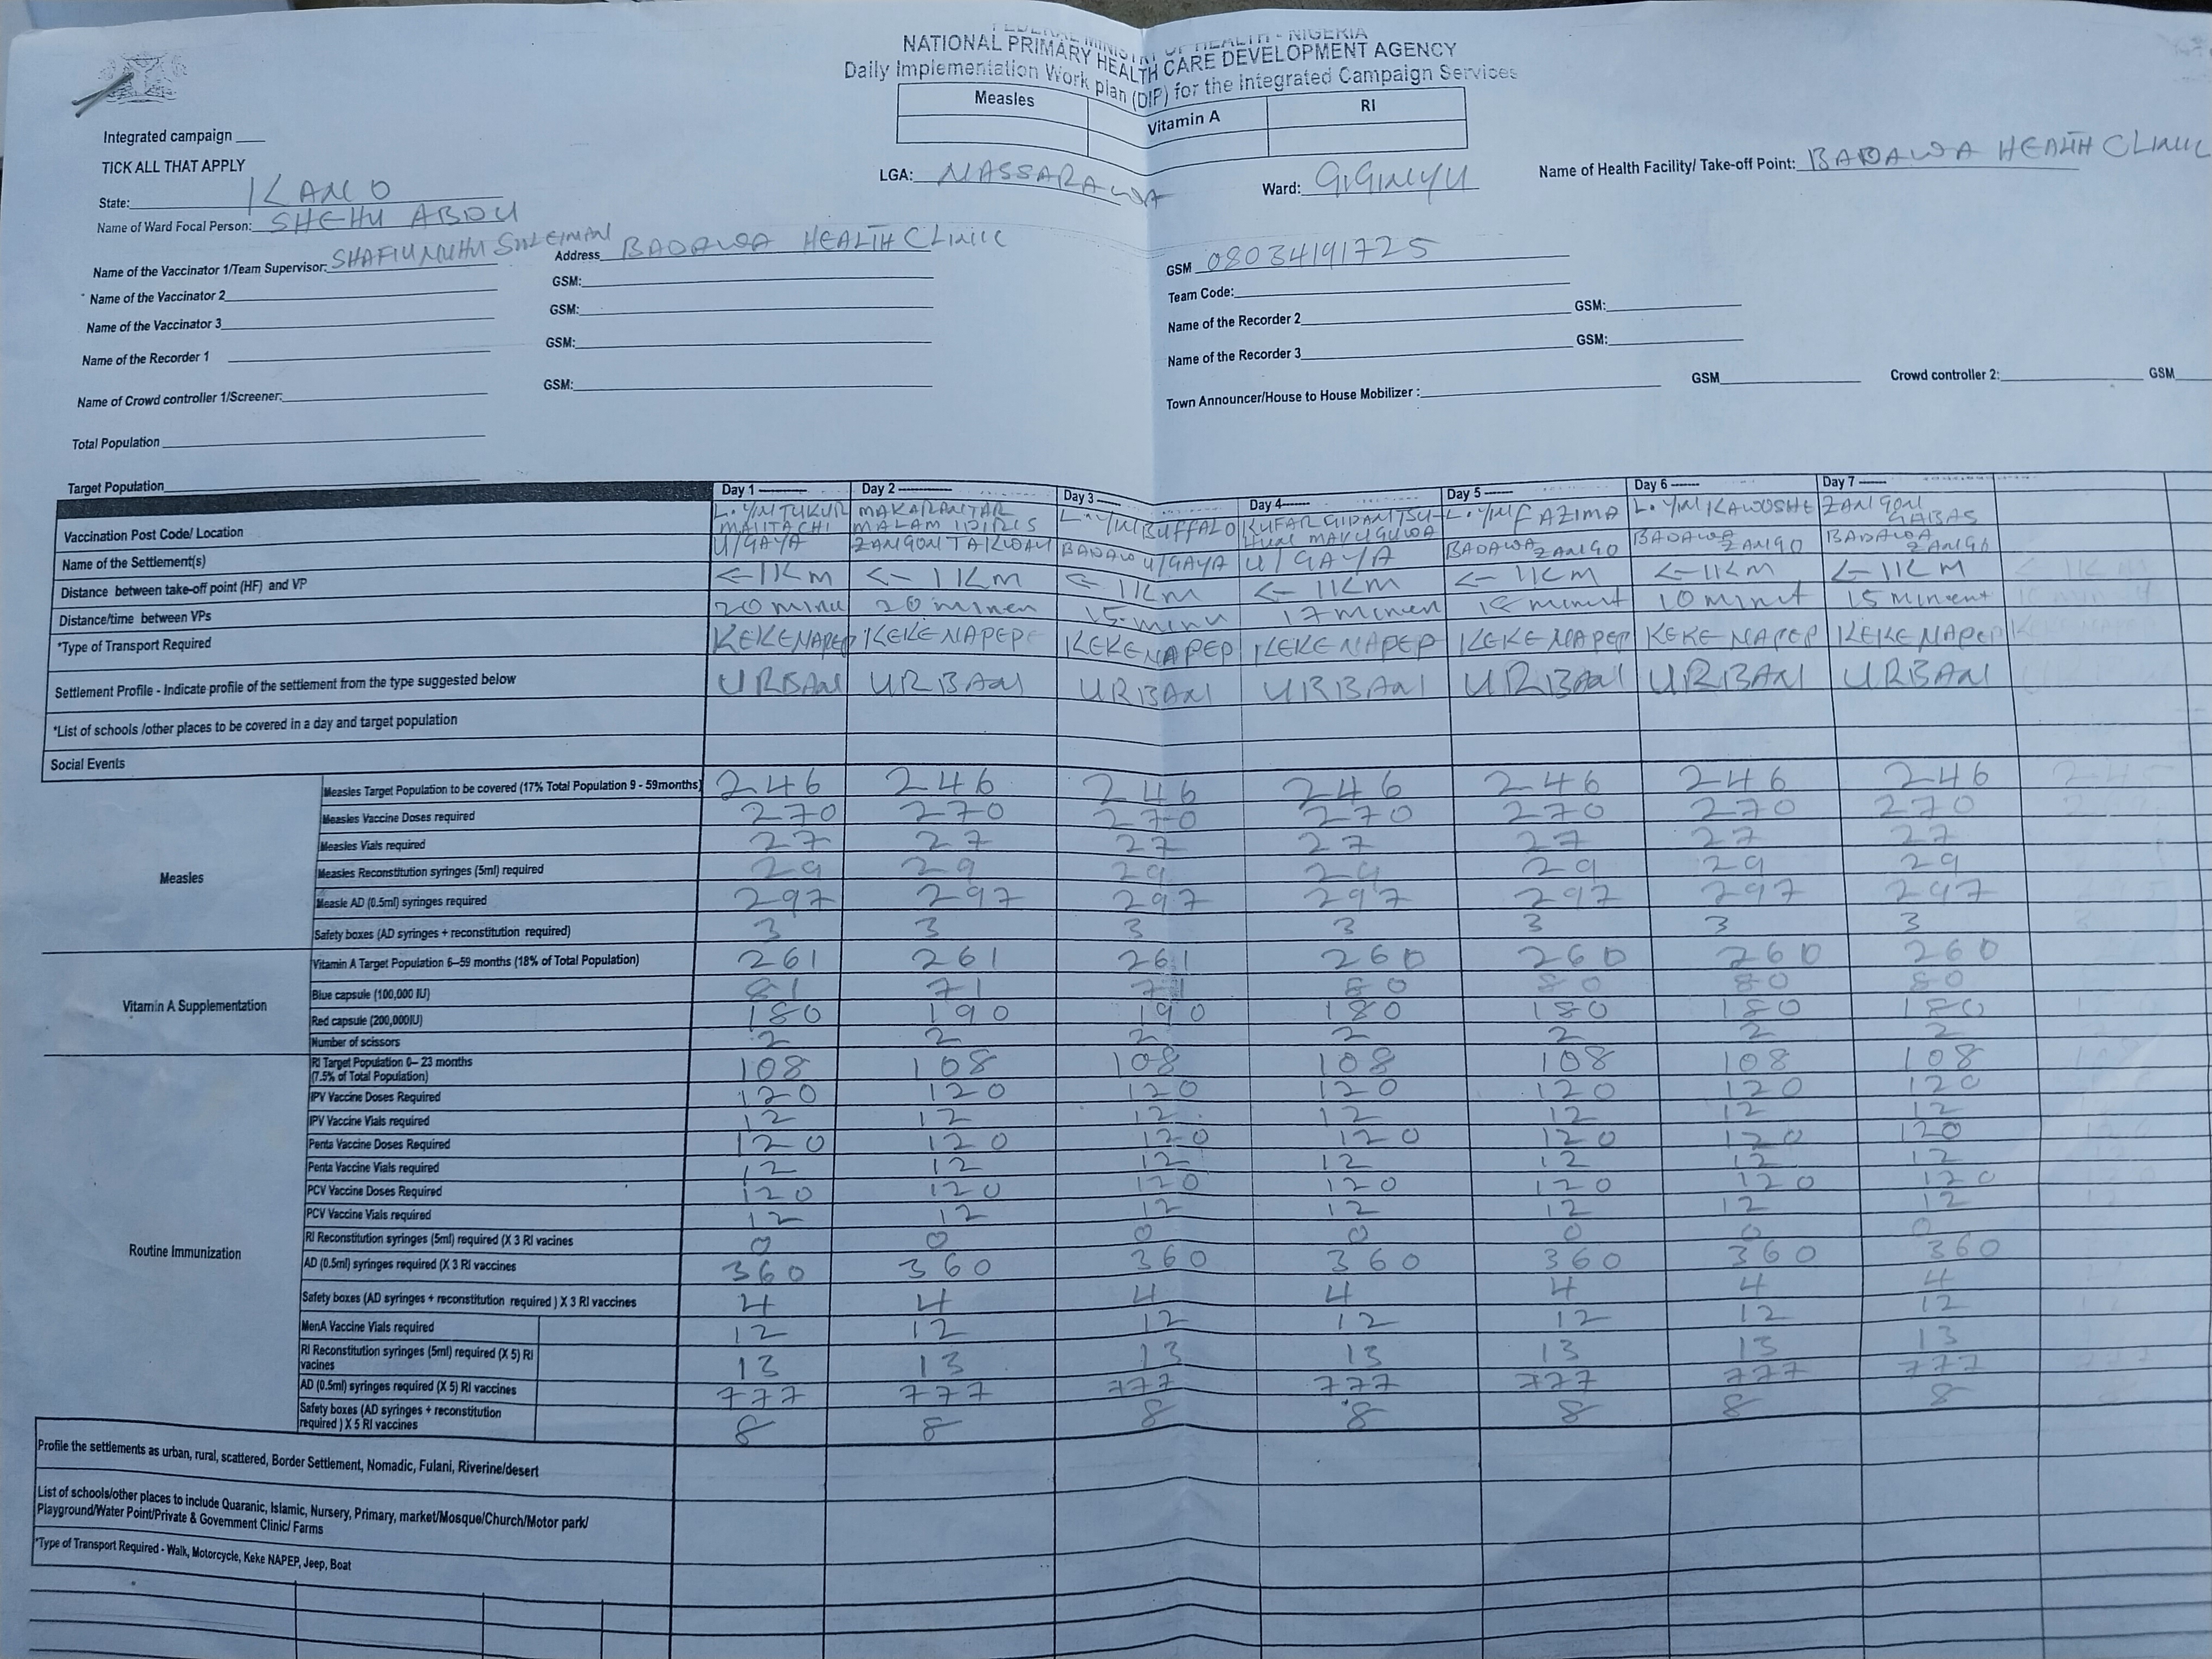 FEDERAL MINISTRY OF HEALTH - NIGERIA
NATIONAL PRIMARY HEALTH CARE DEVELOPMENT AGENCY
Daily Implementation Work plan (DIP) for the Integrated Campaign Services
Integrated campaign
Measles Vitamin A RI
TICK ALL THAT APPLY
State: KANO LGA: NASSARAWA Ward: GIGINYU Name of Health Facility/ Take-off Point: BADAWA HEALTH CLINIC
Name of Ward Focal Person: SHEHU ABDU
Name of the Vaccinator 1/Team Supervisor: Address BADAWA HEALTH CLINIC GSM 08034191725
Name of the Vaccinator 2 GSM: Team Code:
Name of the Vaccinator 3 GSM: Name of the Recorder 2 GSM:
Name of the Recorder 1 GSM: Name of the Recorder 3 GSM:
Name of Crowd controller 1/Screener GSM: Town Announcer/House to House Mobilizer : GSM Crowd controller 2: GSM
Total Population
Target Population Day 1 Day 2 Day 3 Day 4 Day 5 Day 6 Day 7
Vaccination Post Code/ Location
Name of the Settlement(s) U/GAYA BADAWA U/GAYA U/GAYA BADAWA ZANGO BADAWA ZANGO BADAWA ZANGO
Distance between take-off point (HF) and VP <-1KM <-1KM <-1KM <-1KM <-1KM <-1KM <-1KM
Distance/time between VPs 20 minu 20 minnen 15 minu 17 minnen 10 minnt 15 minnent
*Type of Transport Required KEKENAPEP KEKENAPEPE KEKENAPEP KEKENAPEP KEKENAPEP KEKENAPEP KEKENAPEP
Settlement Profile - Indicate profile of the settlement from the type suggested below URBAN URBAN URBAN URBAN URBAN URBAN URBAN
*List of schools /other places to be covered in a day and target population
Social Events
Measles
Measles Target Population to be covered (17% Total Population 9 - 59months) 246 246 246 246 246 246 246
Measles Vaccine Doses required 270 270 270 270 270 270 270
Measles Vials required 27 27 27 27 27 27 27
Measles Reconstitution syringes (5ml) required 29 29 29 29 29 29 29
Measle AD (0.5ml) syringes required 297 297 297 297 297 297 297
Safety boxes (AD syringes + reconstitution required) 3 3 3 3 3 3 3
Vitamin A Supplementation
Vitamin A Target Population 6-59 months (18% of Total Population) 261 261 261 260 260 260 260
Blue capsule (100,000 IU) 81 71 71 80 80 80 80
Red capsule (200,000IU) 180 190 190 180 180 180 180
Number of scissors 2 2 2 2 2 2 2
Routine Immunization
RI Target Population 0- 23 months (7.5% of Total Population) 108 108 108 108 108 108 108
IPV Vaccine Doses Required 120 120 120 120 120 120 120
IPV Vaccine Vials required 12 12 12 12 12 12 12
Penta Vaccine Doses Required 120 120 120 120 120 120 120
Penta Vaccine Vials required 12 12 12 12 12 12 12
PCV Vaccine Doses Required 120 120 120 120 120 120 120
PCV Vaccine Vials required 12 12 12 12 12 12 12
RI Reconstitution syringes (5ml) required (X 3 RI vacines 0 0 0 0 0 0 0
AD (0.5ml) syringes required (X 3 RI vaccines 360 360 360 360 360 360 360
Safety boxes (AD syringes + reconstitution required ) X 3 RI vaccines 4 4 4 4 4 4 4
MenA Vaccine Vials required 12 12 12 12 12 12 12
RI Reconstitution syringes (5ml) required (X 5) RI vaccines 13 13 13 13 13 13 13
AD (0.5ml) syringes required (X 5) RI vaccines 777 777 777 777 777 777 777
Safety boxes (AD syringes + reconstitution required ) X 5 RI vaccines 8 8 8 8 8 8 8
Profile the settlements as urban, rural, scattered, Border Settlement, Nomadic, Fulani, Riverine/desert
List of schools/other places to include Quaranic, Islamic, Nursery, Primary, market/Mosque/Church/Motor park/
Playground/Water Point/Private & Government Clinic/ Farms
*Type of Transport Required - Walk, Motorcycle, Keke NAPEP, Jeep, Boat